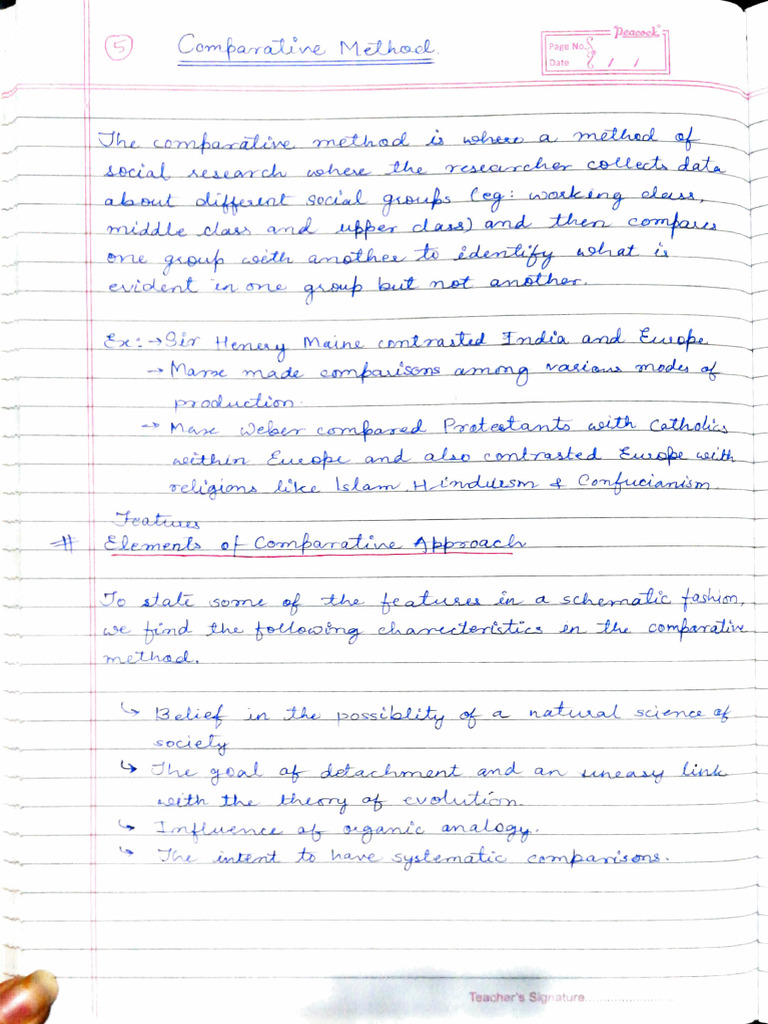 5 Comparative Method.
Peacock
Page No.
Date / /
The comparative method is where a method of
social research where the researcher collects data
about different social groups (eg: working class,
middle class and upper class) and then compares
one group with another to identify what is
evident in one group but not another.
Ex:→Sir Henery Maine contrasted India and Europe
→Marx made comparisons among various modes of
production.
→Max Weber compared Protestants with Catholics
within Europe and also contrasted Europe with
religions like Islam, Hinduism & Confucianism.
Features
# Elements of Comparative Approach
To state some of the features in a schematic fashion,
we find the following charecteristics in the comparative
method.
↳ Belief in the possiblity of a natural science of
society
↳ The goal of detachment and an uneasy link
with the theory of evolution.
↳ Influence of organic analogy.
↳ The intent to have systematic comparisons.
Teacher's Signature....................